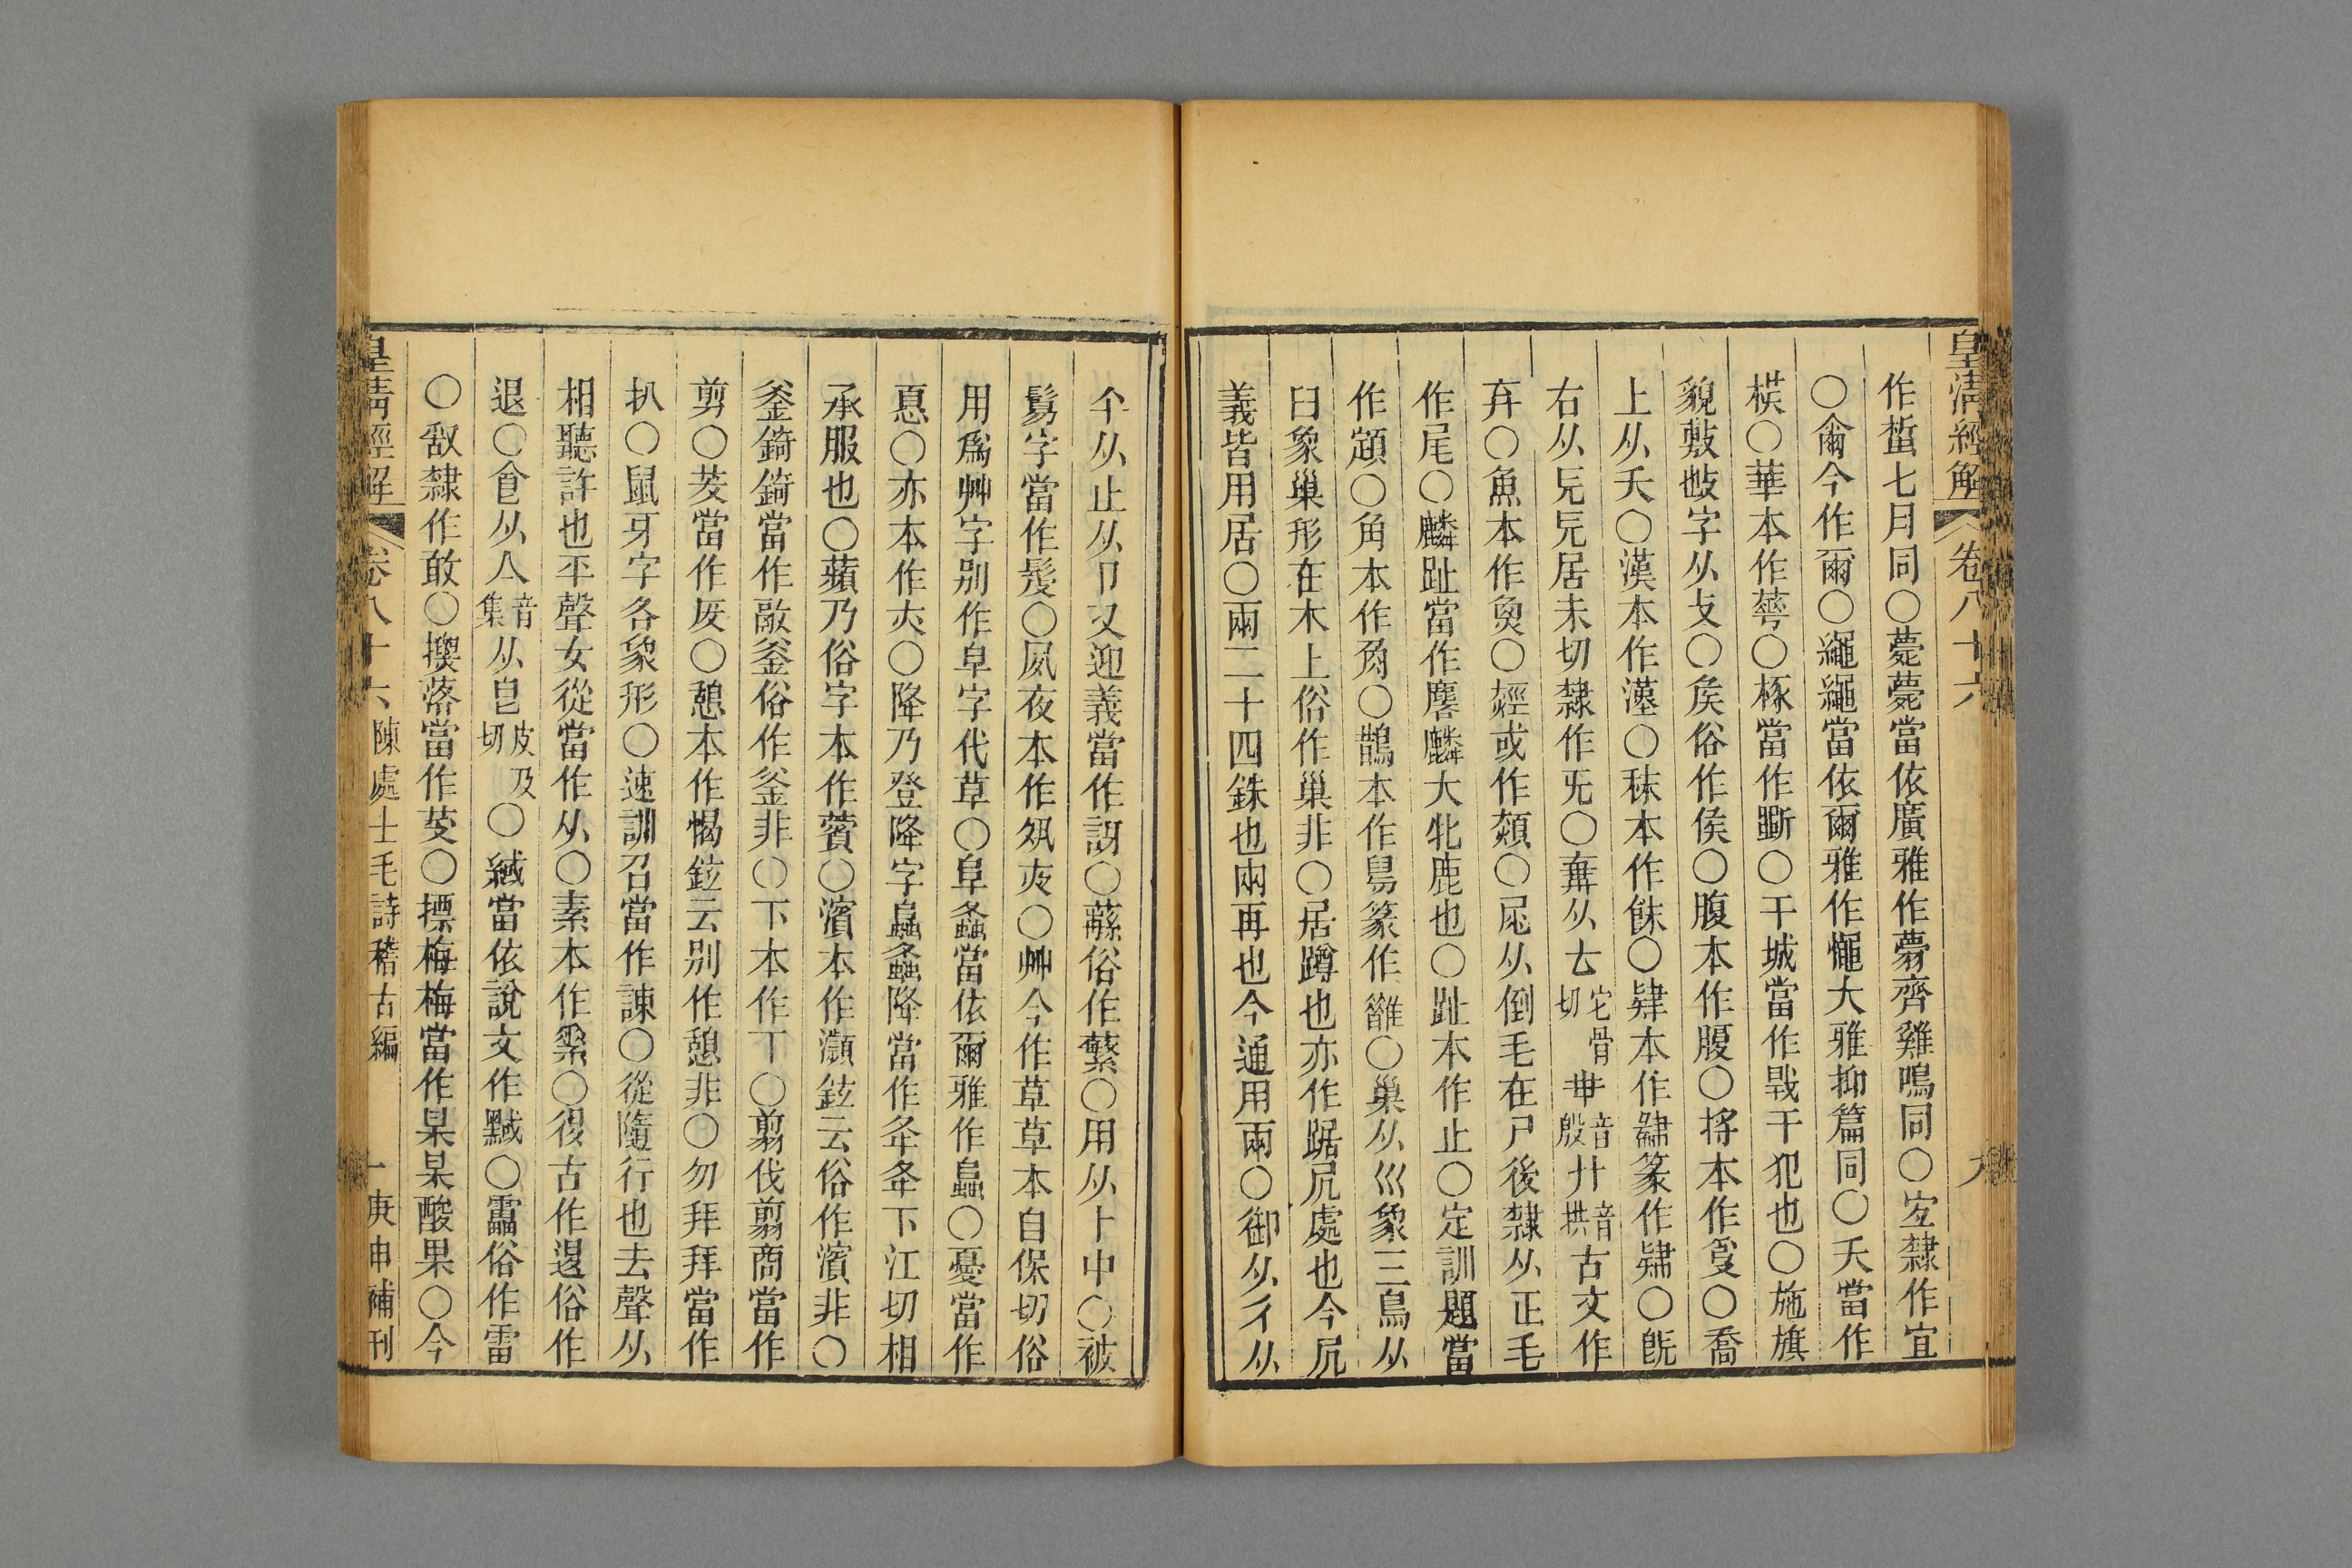 皇淸經解 卷八十六
作晳七月同○薨薨當依廣雅作薨齊雞鳴同○𡧧隸作宜
○爾今作爾○繩繩當依爾雅作憴大雅抑篇同○夭當作
枖○華本作蕚○椓當作斀○干城當作戰干犯也○施旗
貌敷岐字从攴○矦俗作侯○腹本作腹○將本作𤔌○喬
上从夭○漢本作𤁉○秣本作䬴○肄本作𨽸篆作𨽶○旣
右从旡旡居未切隸作旡○棄从𠫓它骨切𠦒音殷廾音拱古文作
弃○魚本作𩵋○赬或作䞓○尾从倒毛在尸後隸从正毛
作尾○麟趾當作麐麟大牝鹿也○趾本作止○定訓題當
作顁○角本作𧢲○鵲本作舄篆作䧿○巢从巛象三鳥从
臼象巢形在木上俗作巢非○居蹲也亦作踞凥處也今凥
義皆用居○兩二十四銖也㒳再也今通用兩○御从彳从
午从止从卩又迎義當作訝○蘇俗作蘩○用从卜中○被
鬄字當作髲○夙夜本作𡖊夜○艸今作草草本自保切俗
用爲艸字别作皁字代草○阜螽當依爾雅作𧒂○憂當作
𢝊○亦本作夾○降乃登降字蟲螽降當作夅夅下江切相
承服也○蘋乃俗字本作薲○濱本作瀕鉉云俗作濱非○
釜錡錡當作敲釜俗作釜非○下本作丅○翦伐翦商當作
剪○茇當作废○憩本作愒鉉云别作憩非○勿拜拜當作
扒○鼠牙字各象形○速訓召當作諫○從隨行也去聲从
相聽許也平聲女從當作从○素本作𦃃○後古作𨒥俗作
退○食从亼音集从皀皮及切○緎當依說文作黬○靁俗作雷
○㪉隸作敢○摽落當作𠬪○摽梅梅當作某某酸果○今
皇淸經解 卷八十六 陳處士毛詩稽古編 庚申補刊